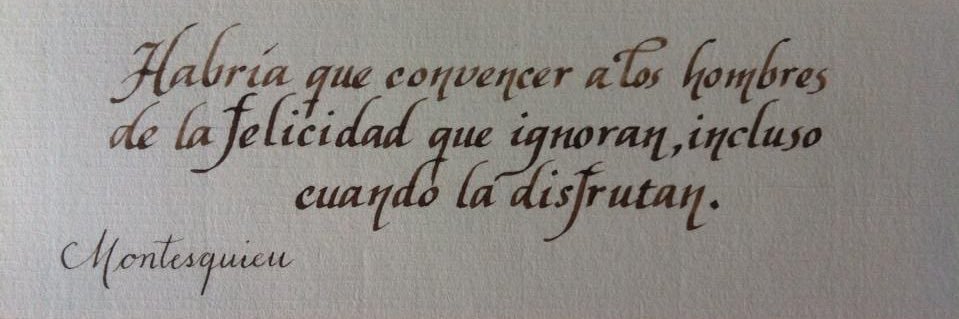 Habría que convencer a los hombres
de la felicidad que ignoran, incluso
cuando la disfrutan.
Montesquieu